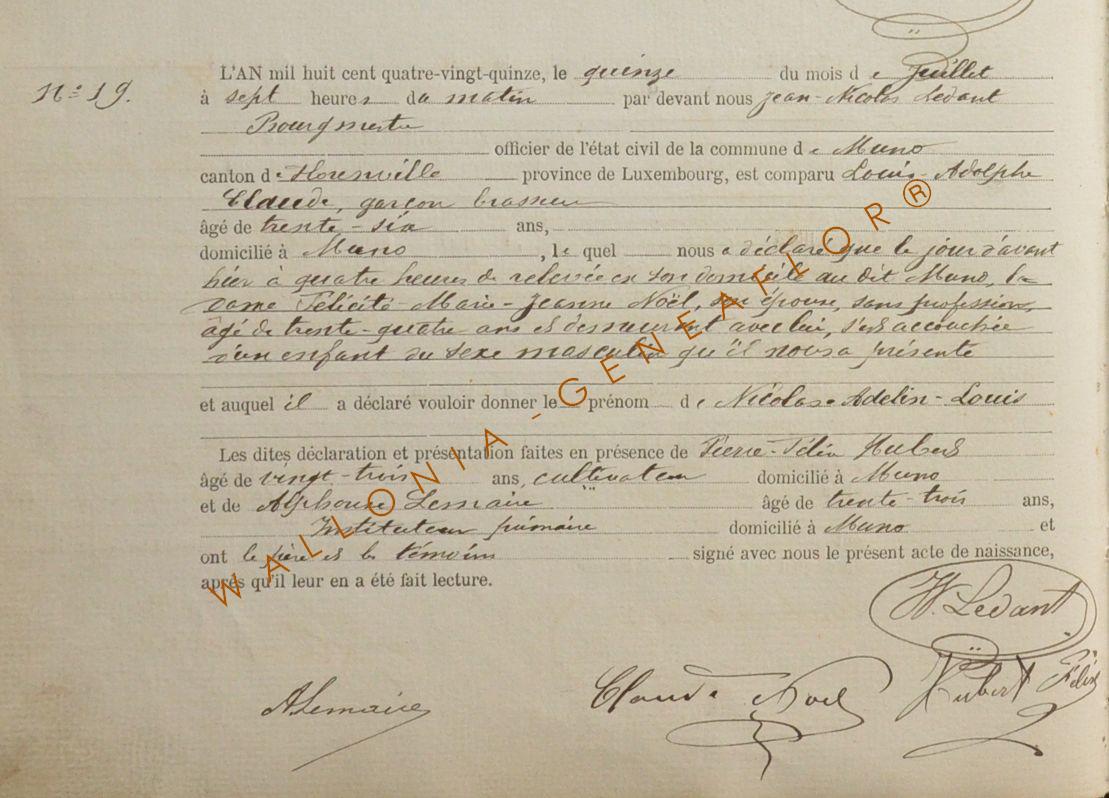 N° 19.
L'AN mil huit cent quatre-vingt-quinze, le quinze du mois de Juillet
à sept heures du matin par devant nous Jean-Nicolas Ledant
Bourgmestre
officier de l'état civil de la commune de Muno
canton de Florenville province de Luxembourg, est comparu Louis-Adolphe
Claude, garçon brasseur
âgé de trente-six ans,
domicilié à Muno, lequel nous a déclaré que le jour d'avant
hier à quatre heures de relevée en son domicile au dit Muno, la
dame Félicité-Marie-Jeanne Noël, son épouse, sans profession,
âgé de trente-quatre ans et demeurant avec lui, s'est accouchée
d'un enfant du sexe masculin qu'il nous a présenté
et auquel il a déclaré vouloir donner le prénom de Nicolas-Adelin-Louis
Les dites déclaration et présentation faites en présence de Pierre-Félix Hubert
âgé de vingt-trois ans, cultivateur domicilié à Muno
et de Alphonse Lemaire âgé de trente-trois ans,
Instituteur primaire domicilié à Muno et
ont le père et les témoins signé avec nous le présent acte de naissance,
après qu'il leur en a été fait lecture.
WALLONIA-GENEAFLOR®
N. Ledant
ALemaire
Claude Noël
Hubert Félix